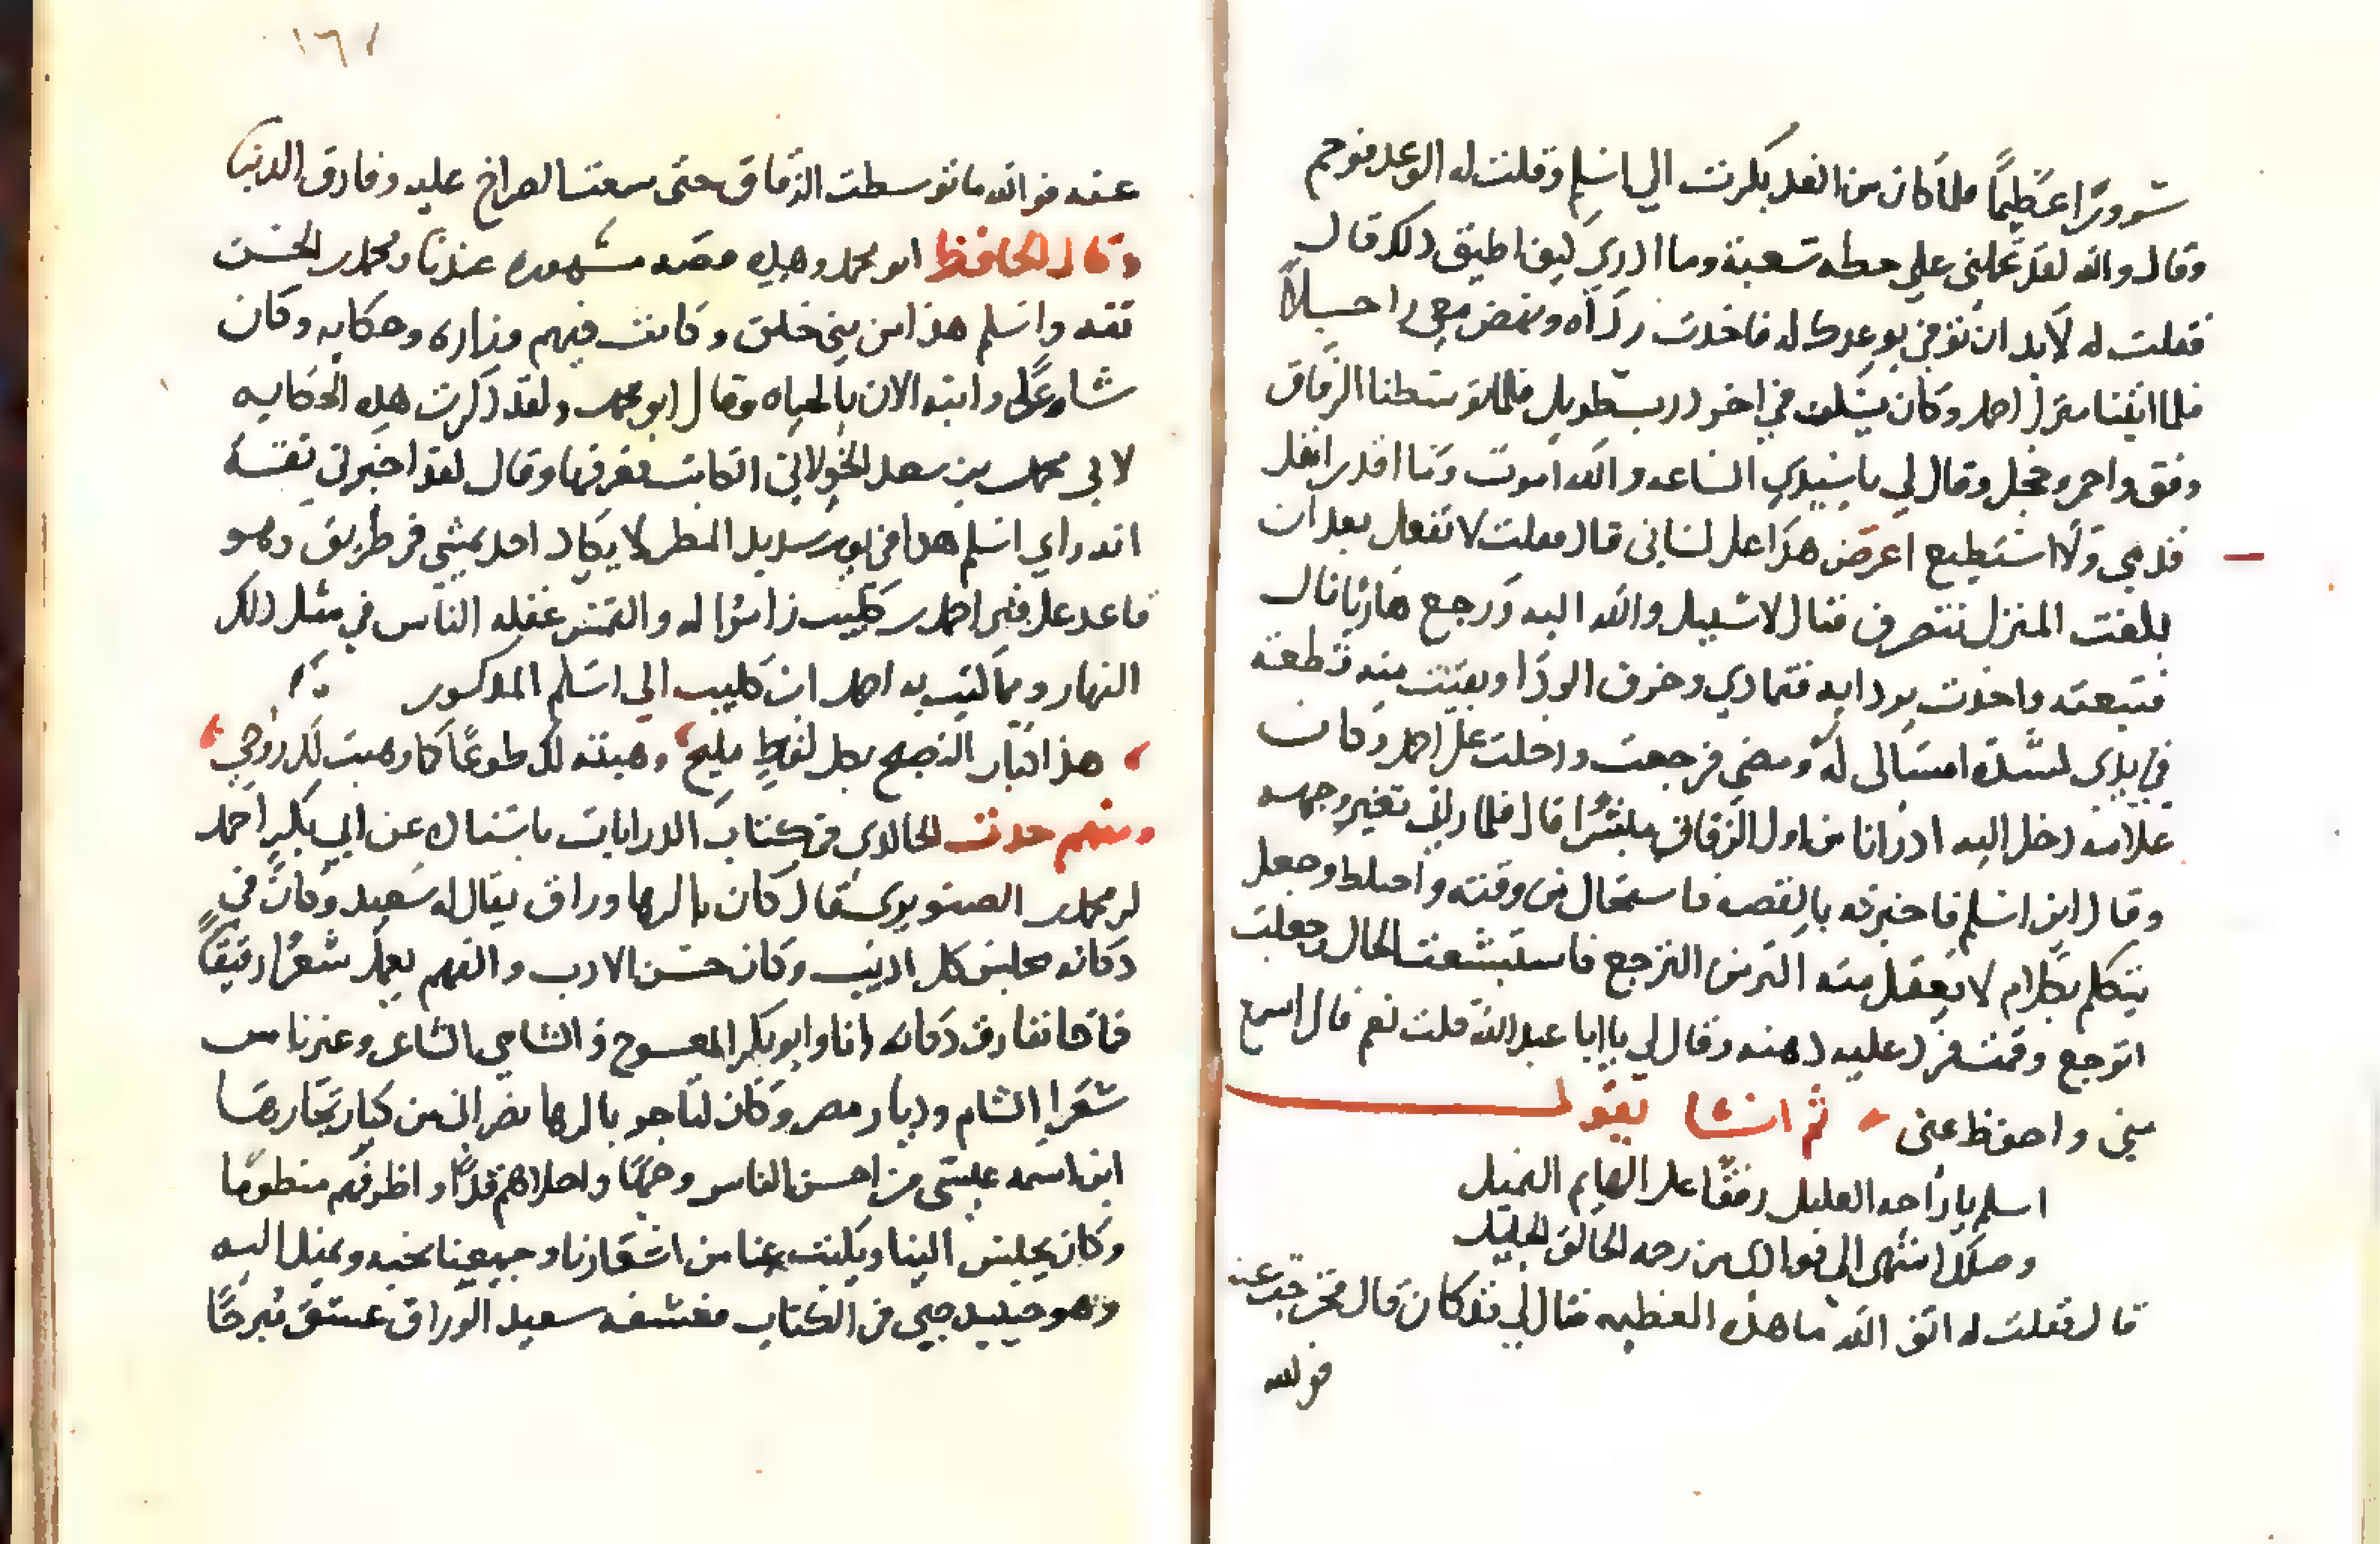 سرورًا عظيمًا فلما كان من الغد بكرت الى اسلم وقلت له الوعد فوجم
وقال والله لقد تحملنى على خطه صعبة وما ادري كيف اطيق ذلك قال
فقلت له لا بد ان توفي بوعدك له فاخدت رداه ونهض معي راجلًا
فلما اتينا منزل احمد وكان يسكن في اخر درب طويل فلما توسطنا الزقاق
وقف واحمر وخجل وقال لي يا سيدي الساعه والله اموت وما اقدر انقل
قدمي ولا استطيع اعرض هذا على لسانى قال فقلت لا تفعل بعد ان
بلغت المنزل تنصرف فقال لا سبيل والله اليه ورجع هاربا قال
فتبعته واخدت بردايه فتمادي وخرق الردا وبقيت منه قطعة
في يدى لشدة امساكى له ومضى فرجعت ودخلت على احمد وكان
غلامه دخل اليه اذ رانا من اول الزقاق مبشرًا قال فلما رانى تغير وجهه
وقال اين اسلم فاخبرته بالقصه فاستحال من وقته واختلط وجعل
يتكلم بكلام لا يعقل منه اكثر من الترجع فاستبشعت الحال وجعلت
اتوجع وقمت فرد عليه ذهنه وقال لي يا ابا عبد الله قلت نعم قال اسمع
مني واحفظ عنى ثم انشا يقول
اسلم يا راحه العليل رفقًا على الهايم النحيل
وصلك اشهى الى فوادى من رحمه الخالق الجليل
قال فقلت له اتق الله ما هذه العظيمه فقال لي قد كان قال فخرجت عنه
فوالله
١٦١
عنه فوالله ما توسطت الزقاق حتى سمعت الصراخ عليه وفارق الدنيا
وقال الحافظ ابو محمد وهذه قصه مشهوره عندنا ومحمد بن الحسن
ثقه واسلم هذا من بني خلق وكانت فيهم وزاره وحجابه وكان
شاعرًا وابنه الان بالحياه وقال ابو محمد ولقد ذكرت هذه الحكايه
لابي محمد بن سعد الخولانى الكاتب فعرفها وقال لقد اخبرنى ثقة
انه راي اسلم هذا في يوم شديد المطر لا يكاد احد يمشي في طريق وهو
قاعد على قبر احمد بن كليب زايرًا له والتمس غفله الناس في مثل ذلك
النهار ومما كتب به احمد ابن كليب الى اسلم المذكور
هذا كتاب الفصيح بكل لفظ مليح وهبته لك طوعًا كما وهبت لك روحي
ومنهم حدث الخالدى في كتاب الديارات باسناده عن ابي بكر احمد
بن محمد الصنوبرى قال كان بالرها وراق يقال له سعيد وكان في
دكانه مجلس كل اديب وكان حسن الادب والفهم يعمل شعرًا رقيقًا
فما كنا نفارق دكانه انا وابو بكر المعوج الشامي الشاعر وغيرنا من
شعرا الشام وديار مصر وكان لتاجر بالرها نصرانى من كبار تجارها
ابن اسمه عيسى من احسن الناس وجهًا واحلاهم قدًا واظرفهم منطوقًا
وكان يجلس الينا ويكتب عنا من اشعارنا وجميعنا يحبه ويميل اليه
وهو حينيد صبي في الكتاب فعشقه سعيد الوراق عشقًا مبرحًا